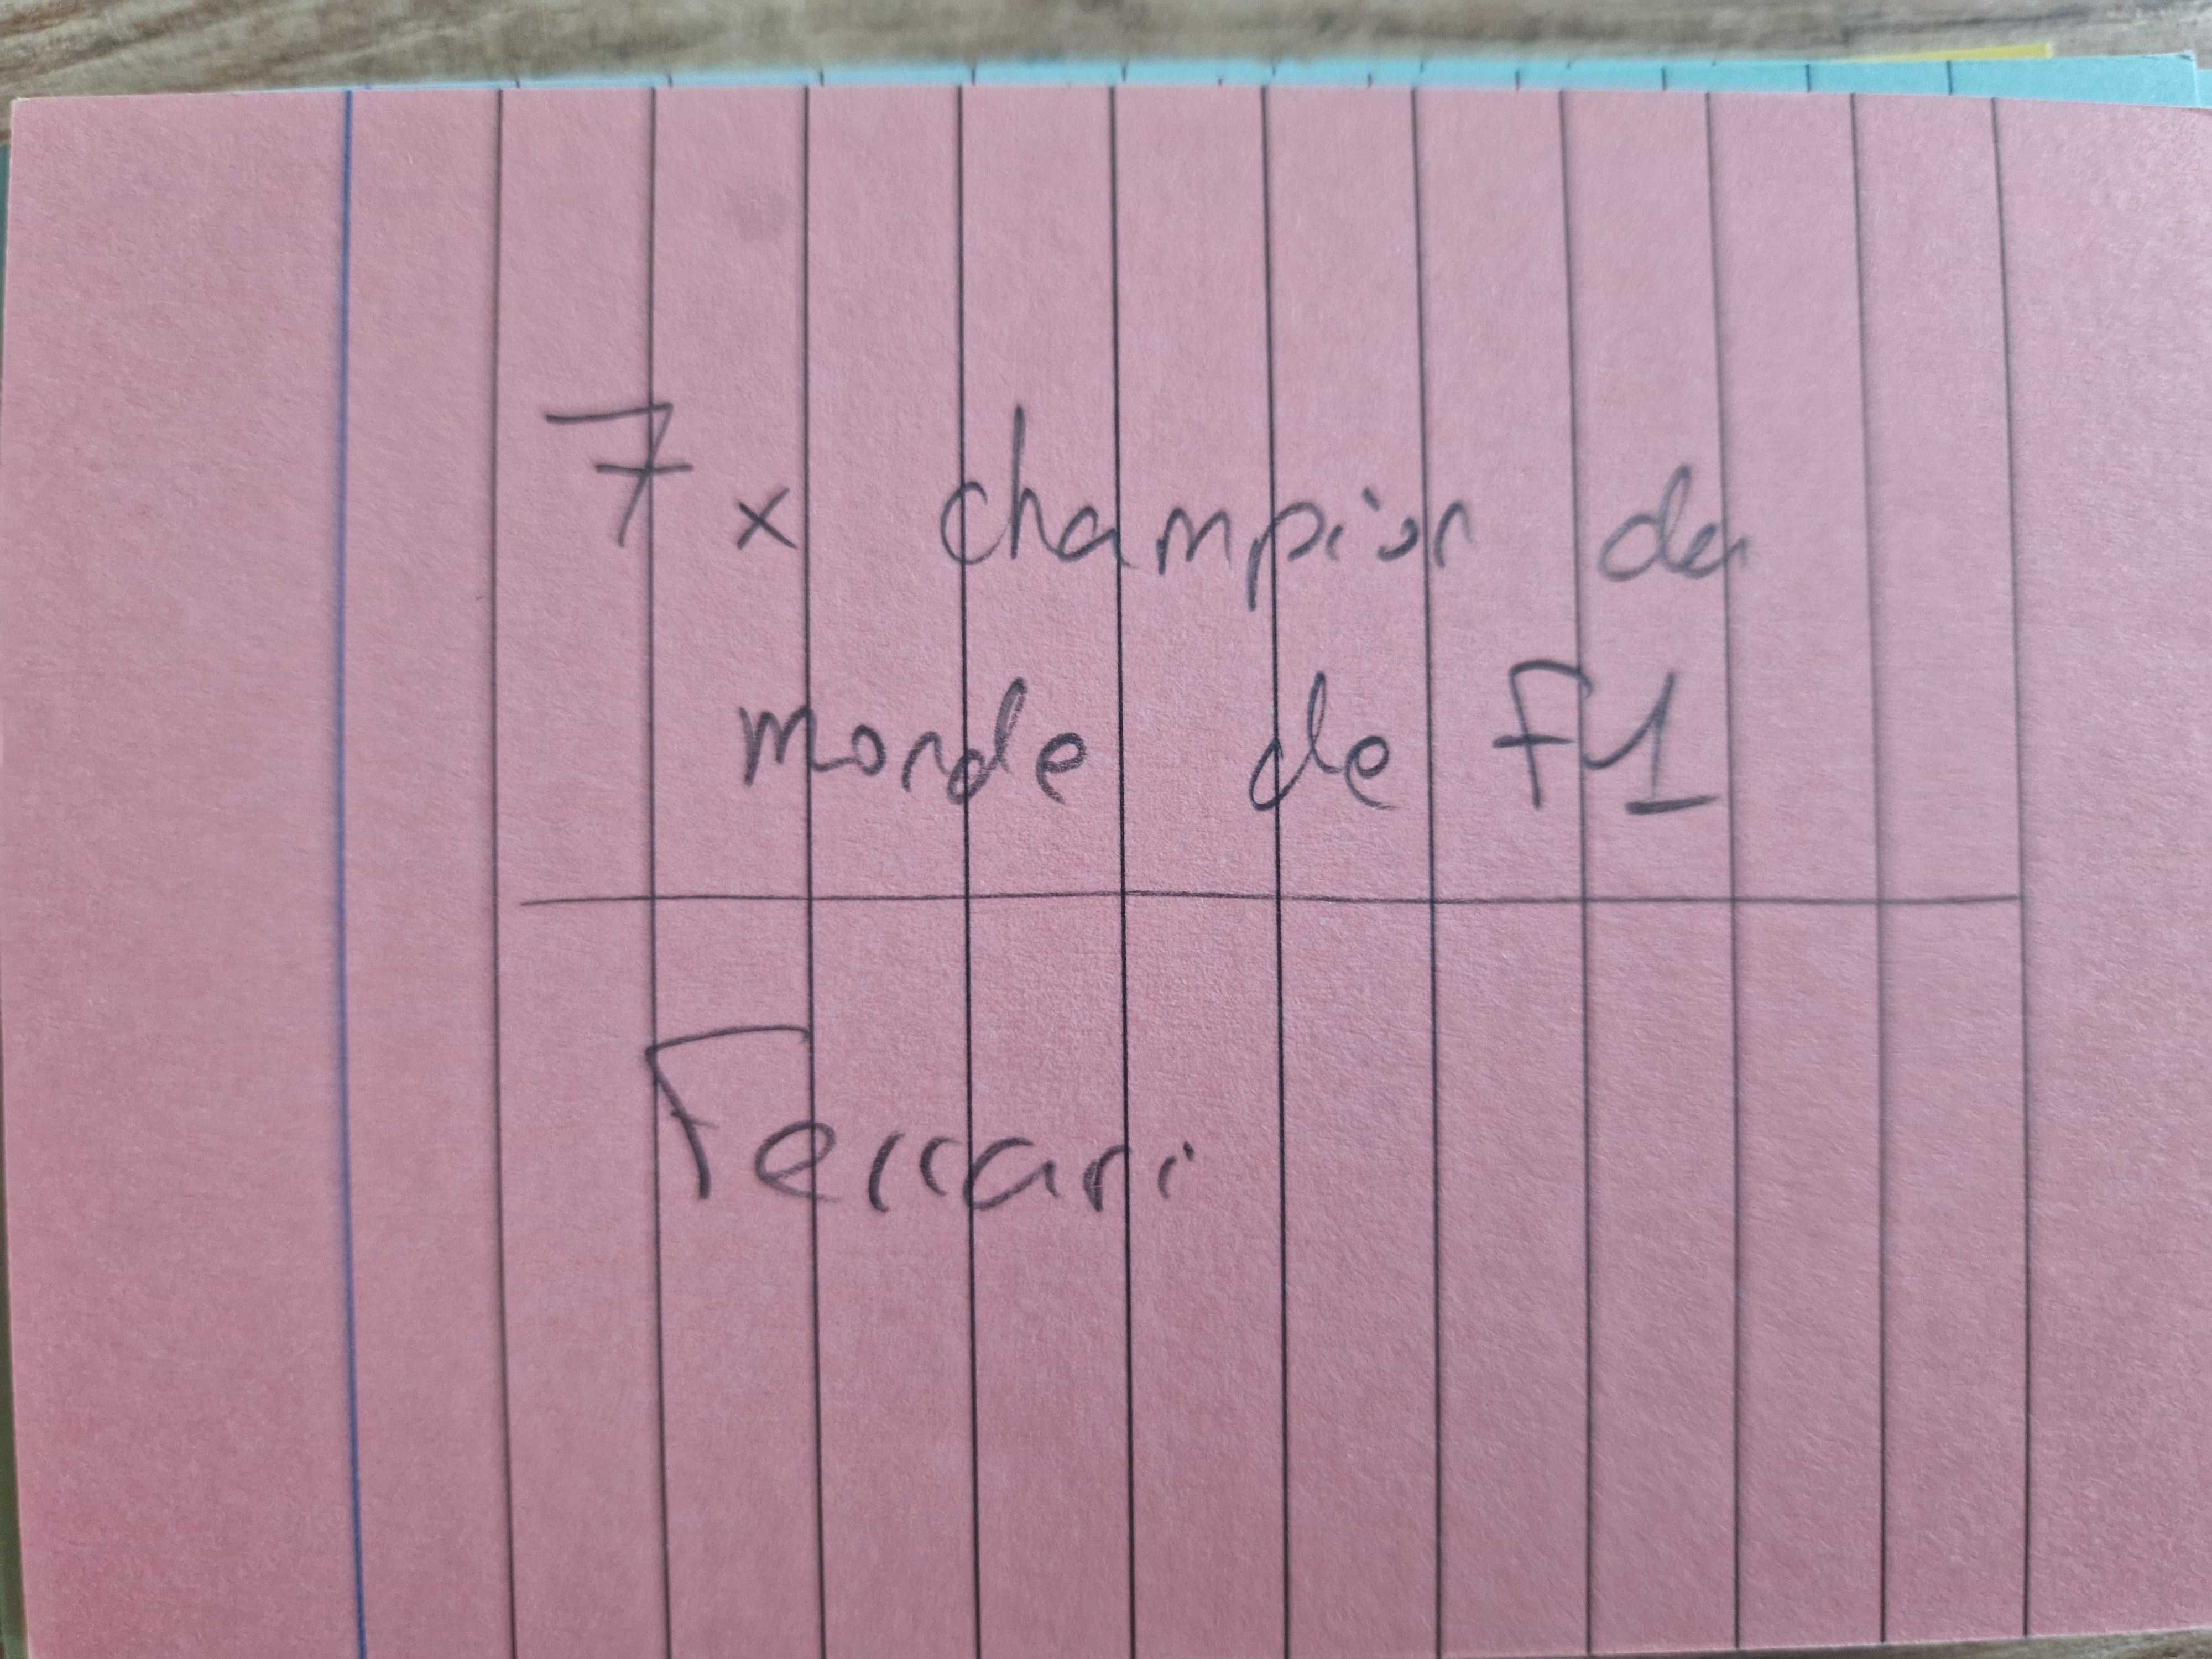 7x champion du
monde de F1
Ferrari